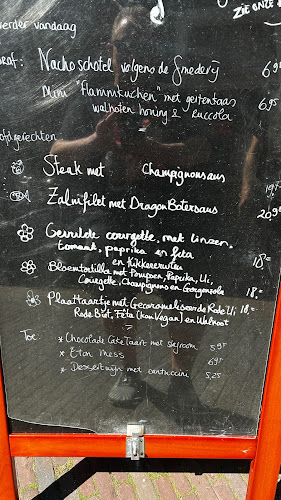 verder vandaag
ZIE ONZE
raf: Nachoschotel volgens de Smederij 6.95
Mini "Flammkuchen" met geitenkaas 6,95
walnoten honing & Ruccola
ofdgerechten
Steak met Champignonsaus
Zalmfilet met Dragon Botersaus 20,95
Gevulde courgette, met linzen,
tomaat, paprika en feta
en Kikkererwten 18,=
Bloemtortilla met Pompoen, Paprika, Ui,
Courgette, Champignons en Gorgonzola 18,-
Plaattaartje met Gecarameliseerde Rode Ui 18,-
Rode Biet, Feta (kan Vegan) en Walnoot
Toe:
* Chocolade Cake Taart met slagroom 5,95
* Eton Mess 6,95
* Dessertwijn met cantuccini 5,25